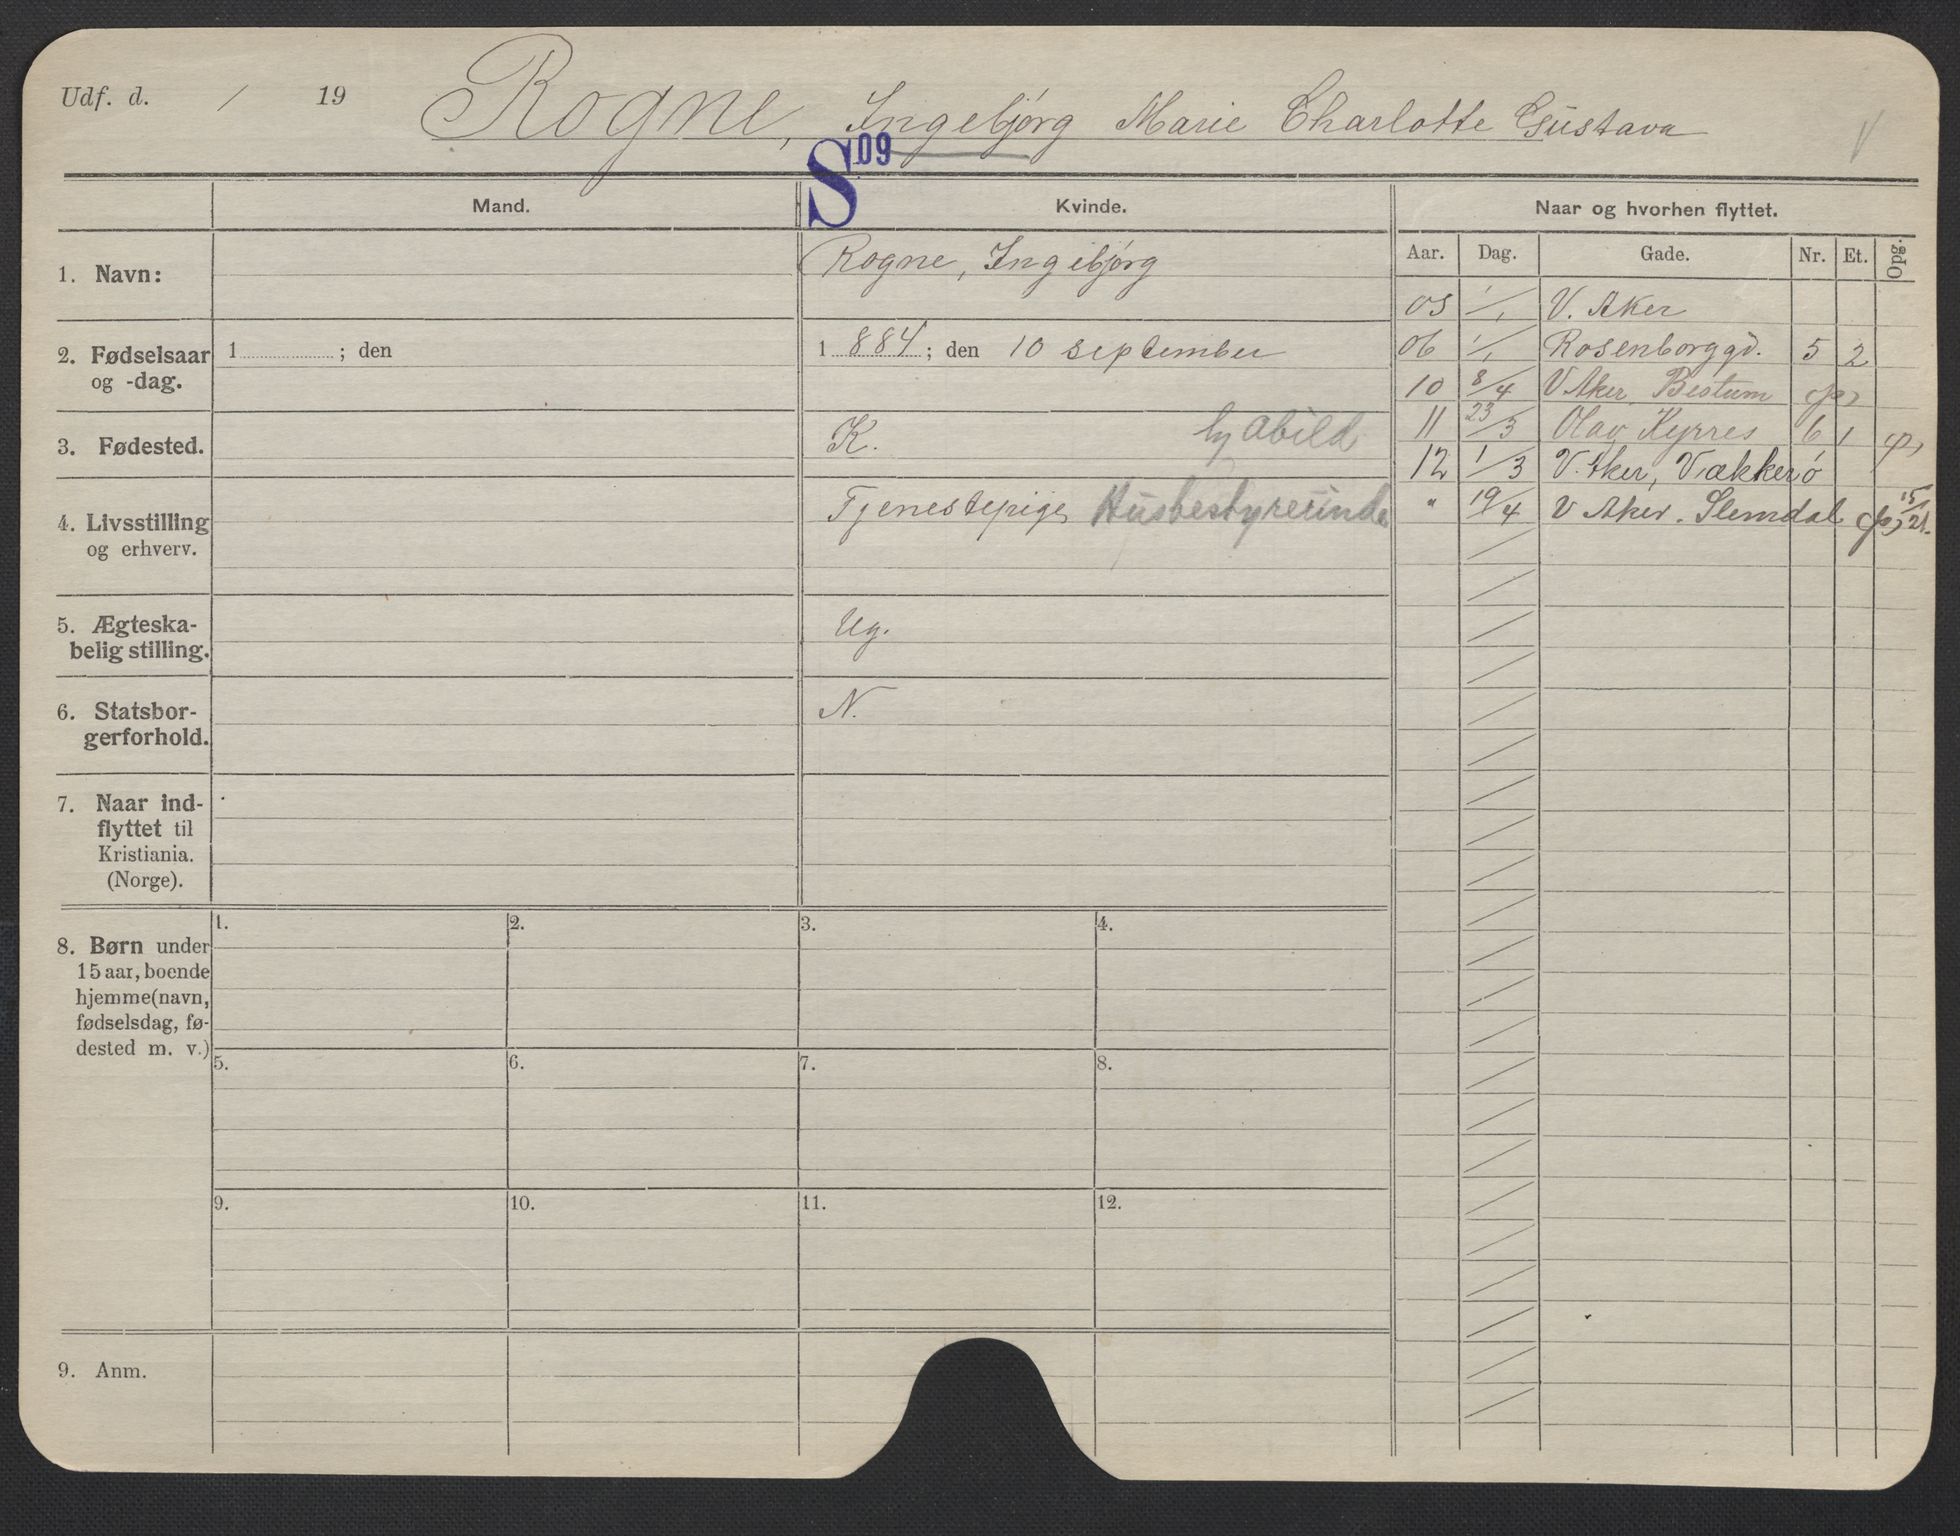 Udf. d. / 19 Rogne, Ingebjørg Marie Charlotte Gustava
S 09
Mand. Kvinde. Naar og hvorhen flyttet.
Aar. Dag. Gade. Nr. Et. Opg.
1. Navn: Rogne, Ingebjørg
2. Fødselsaar
og -dag.
1 ; den
1 884 ; den 10 september
3. Fødested. K. Abild
4. Livsstilling
og erhverv.
Tjenestepige, Husbestyrerinde
5. Ægteska-
belig stilling.
Ug.
6. Statsbor-
gerforhold.
N.
7. Naar ind-
flyttet til
Kristiania.
(Norge).
8. Børn under
15 aar, boende
hjemme (navn,
fødselsdag, fø-
dested m. v.)
1. 2. 3. 4.
5. 6. 7. 8.
9. 10. 11. 12.
9. Anm.
05 1/1 V. Aker
06 1/1 Rosenborggd. 5 2
10 8/4 V Aker, Bestum
11 23/3 Olav Kyrres 6 1
12 1/3 V. Aker, Vækkerø
" 19/4 V Aker. Slemdal 15/21.